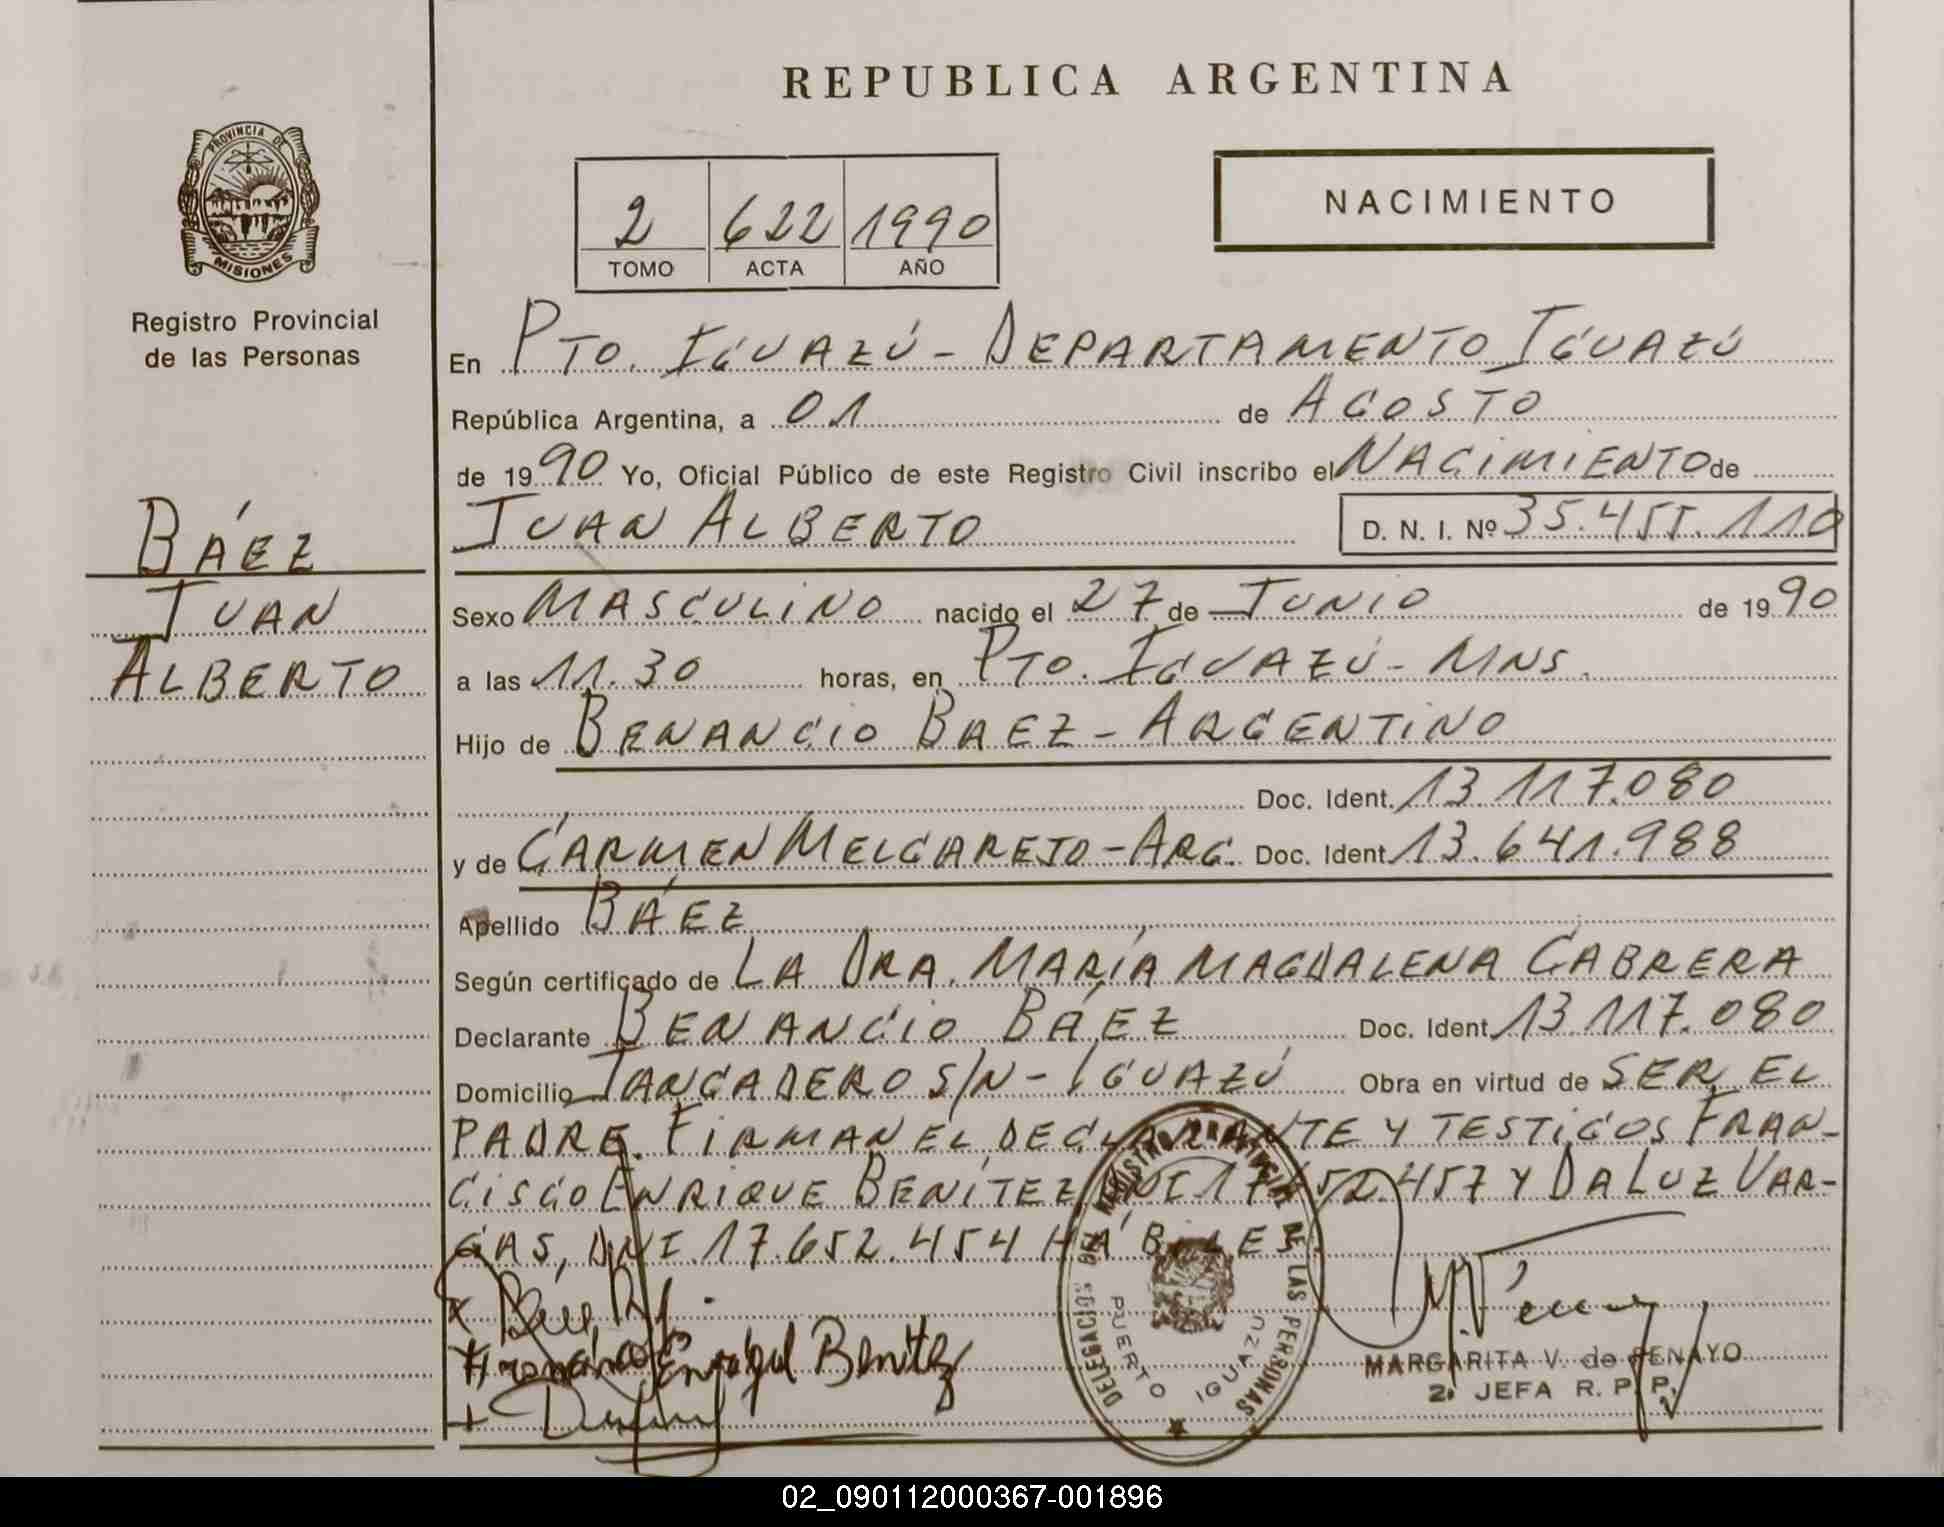 REPUBLICA ARGENTINA
PROVINCIA DE
MISIONES
Registro Provincial
de las Personas
2 622 1990
TOMO ACTA AÑO
NACIMIENTO
En PTO. IGUAZÚ - DEPARTAMENTO IGUAZÚ
República Argentina, a 01 de AGOSTO
de 1990 Yo, Oficial Público de este Registro Civil inscribo el NACIMIENTO de
JUAN ALBERTO D. N. I. Nº 35.455.110
BÁEZ
JUAN
ALBERTO
Sexo MASCULINO nacido el 27 de JUNIO de 1990
a las 11.30 horas, en PTO. IGUAZÚ - MNS.
Hijo de BENANCIO BAEZ - ARGENTINO
Doc. Ident. 13.117.080
y de CARMEN MELGAREJO - ARG. Doc. Ident. 13.641.988
Apellido BÁEZ
Según certificado de LA DRA. MARÍA MAGDALENA CABRERA
Declarante BENANCIO BÁEZ Doc. Ident. 13.117.080
Domicilio TANGADERO S/N - IGUAZÚ Obra en virtud de SER EL
PADRE. FIRMAN EL DECLARANTE Y TESTIGOS FRAN-
CISCO ENRIQUE BENÍTEZ, DNI 17.652.457 Y DA LUZ VAR-
GAS, DNI 17.652.454 HÁBILES.
Enrique Benitez
DELEGACION DEL REGISTRO PROVINCIAL DE LAS PERSONAS
PUERTO IGUAZU
MARGARITA V. de PENAYO
2ª JEFA R. P. P.
02_090112000367-001896